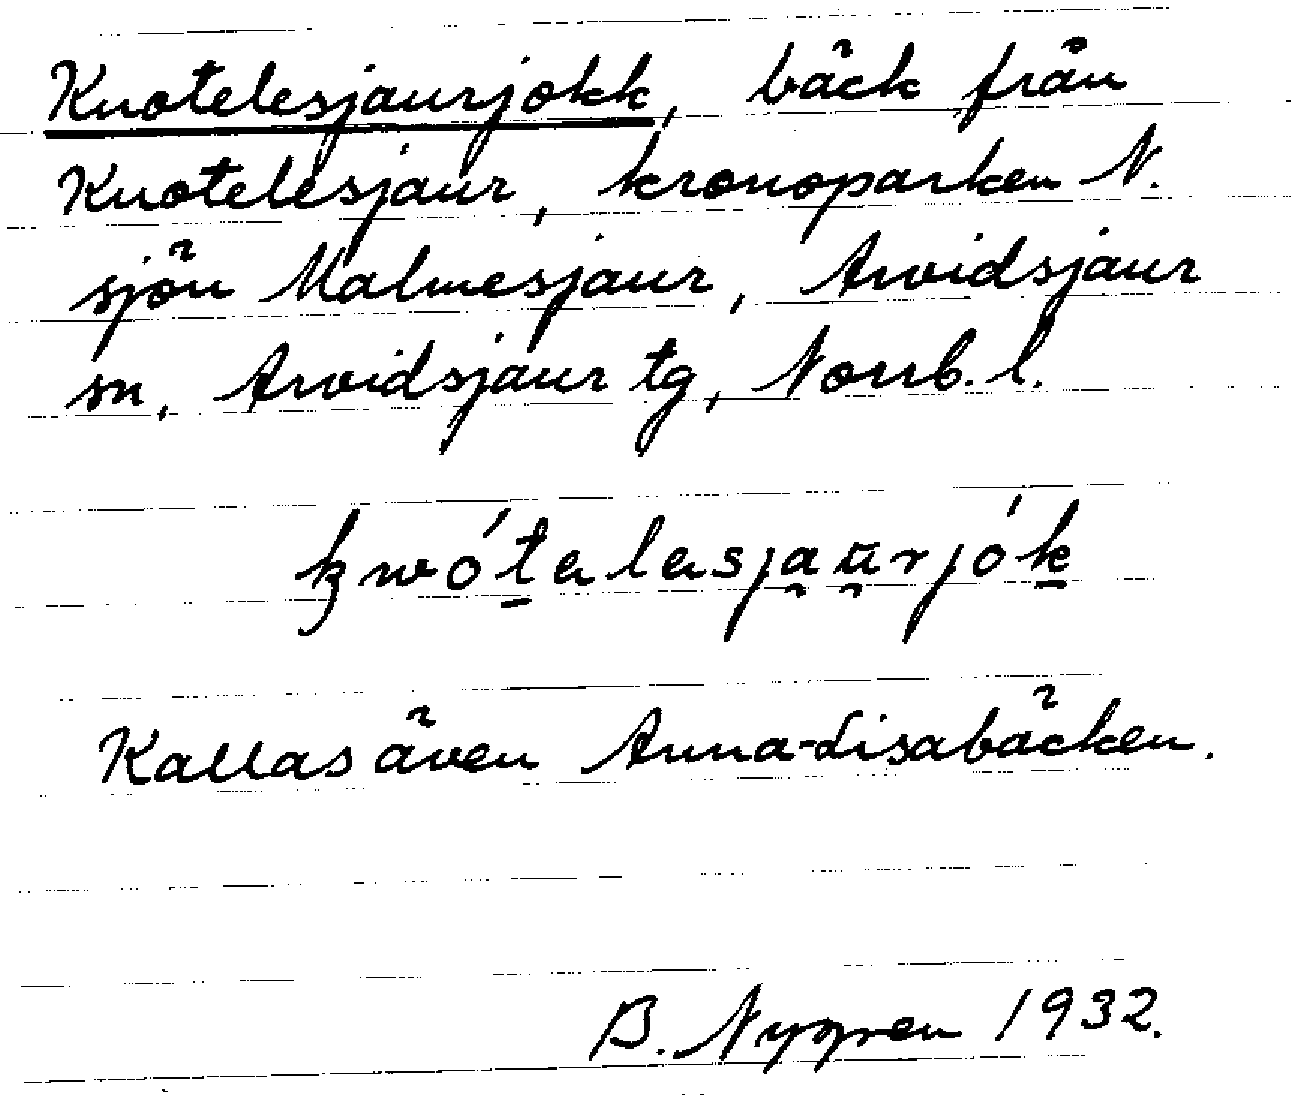 Kuotelesjaurjokk, bäck från
Kuotelesjaur, kronoparken N.
sjön Malmesjaur, Arvidsjaur
sn, Arvidsjaur tg, Norrb. l.
Kallas även Anna-Lisabäcken.
B. Nygren 1932.